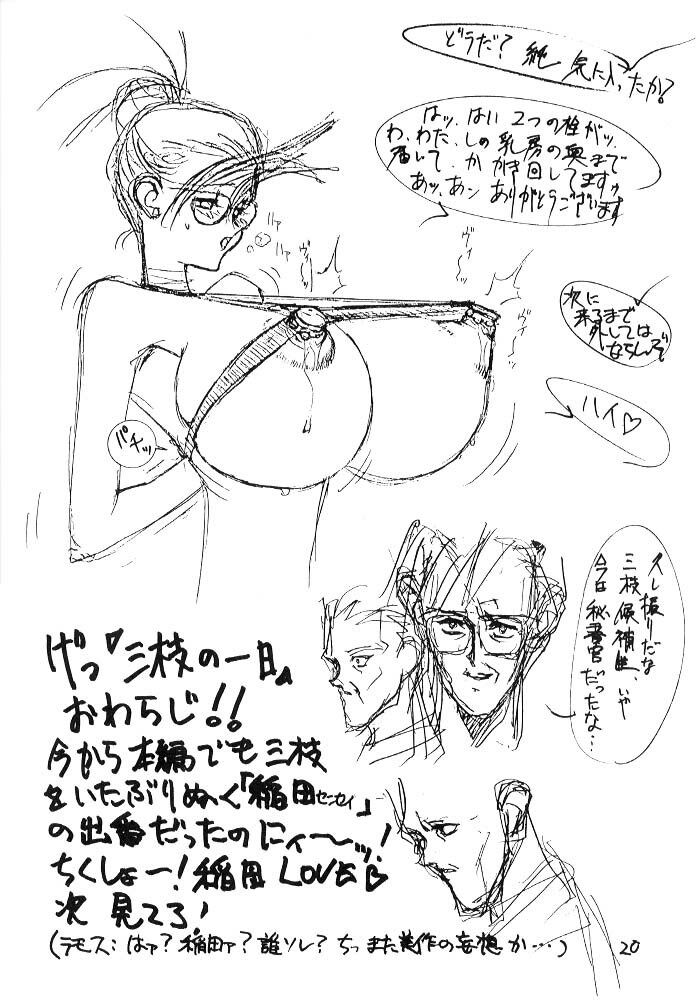 どうだ？ 純 気に入ったか？
はッ、はい 2つの栓がッ、
わ、わた、しの乳房の奥まで
届いて、か かき回してますゥ
あッ、アン ありがとうございます
ヴィ〜
ヴィ〜
ハァ
ハァ
次に
来るまで
外しては
ならんぞ
ハイ♡
パチッ
久し振りだな
三枝候補生、いや
今は 秘書官
だったな…
げっ『三枝の一日』
おわらじ!!
今から本編でも三枝
をいたぶりぬく「稲田センセイ」
の出番だったのにィ〜ッ!
ちくしょー! 稲田 LOVE♡
次 見てろ!
(デモス: はァ? 稲田ァ? 誰ソレ? ちっ また 作の妄想か…)
20